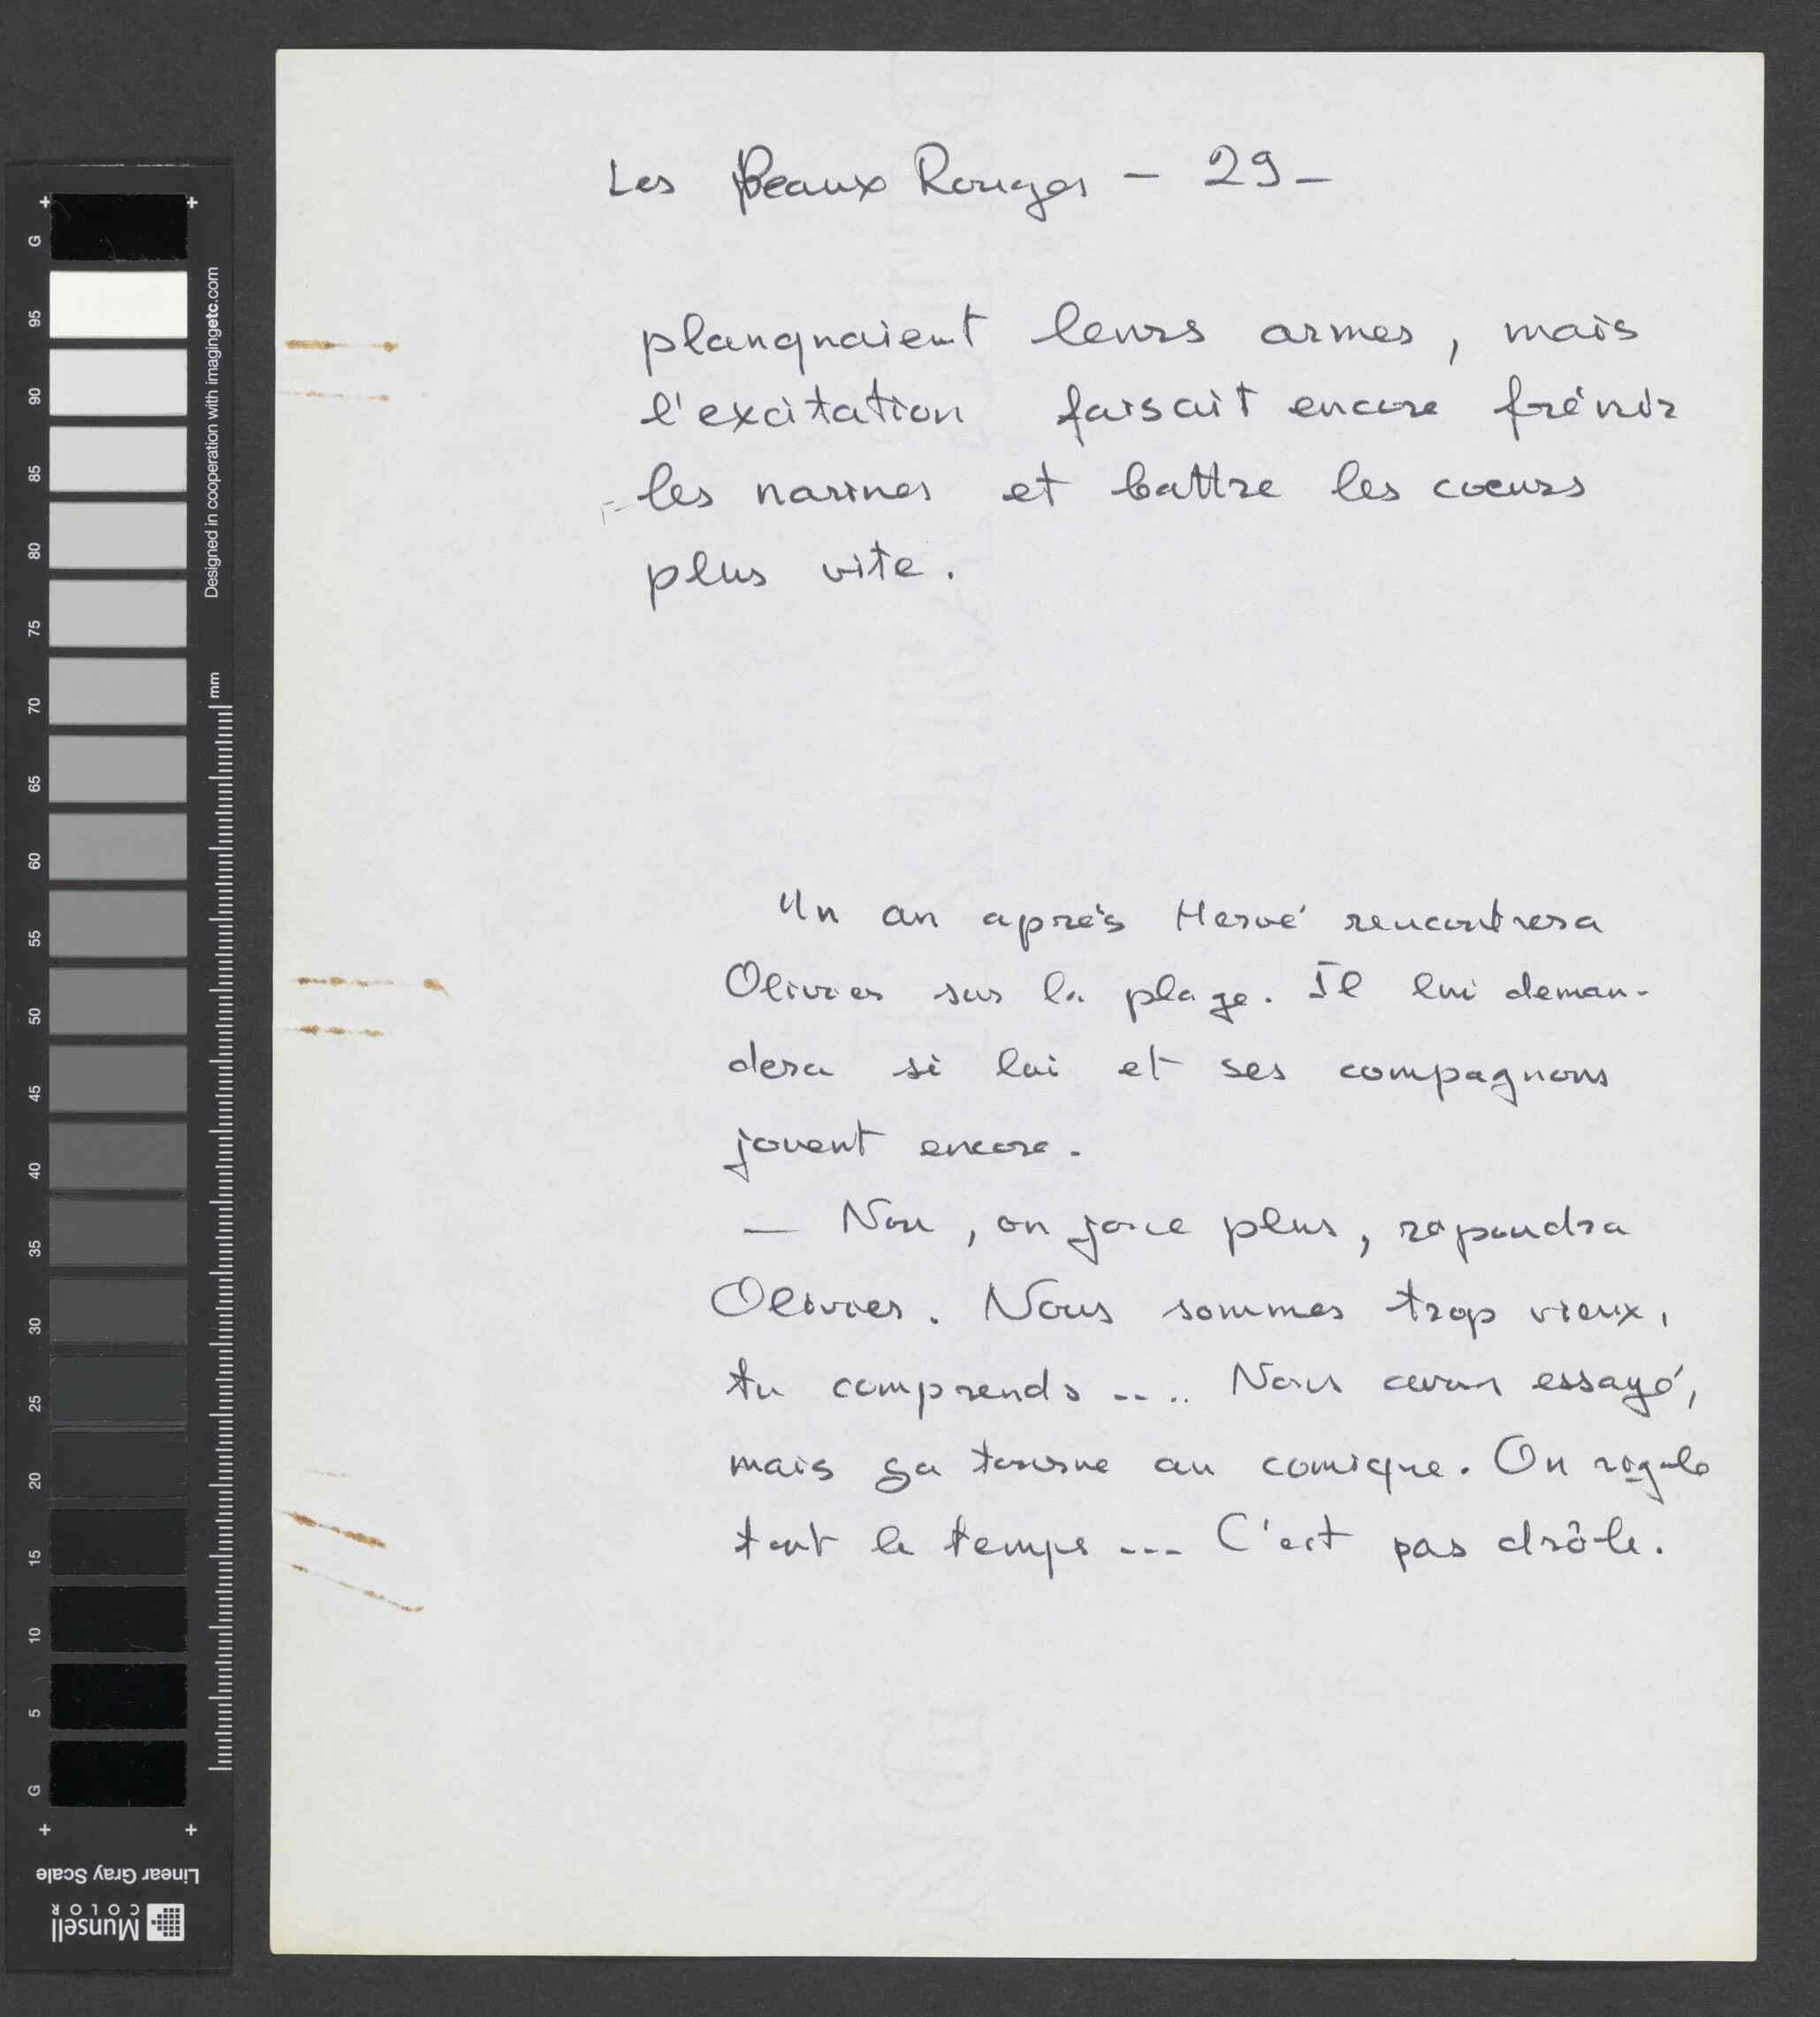 Les Peaux Rouges - 29 -
planquaient leurs armes, mais
l'excitation faisait encore frémir
les narines et battre les coeurs
plus vite.
Un an après Hervé rencontrera
Olivier sur la plage. Il lui deman-
dera si lui et ses compagnons
jouent encore.
— Non, on joue plus, répondra
Olivier. Nous sommes trop vieux,
tu comprends .... Nous avons essayé,
mais ça tourne au comique. On rigole
tout le temps ... C'est pas drôle.
G
95
90
85
80
75
70
65
60
55
50
45
40
35
30
25
20
15
10
5
G
Designed in cooperation with imagingetc.com
mm
Linear Gray Scale
Munsell
COLOR